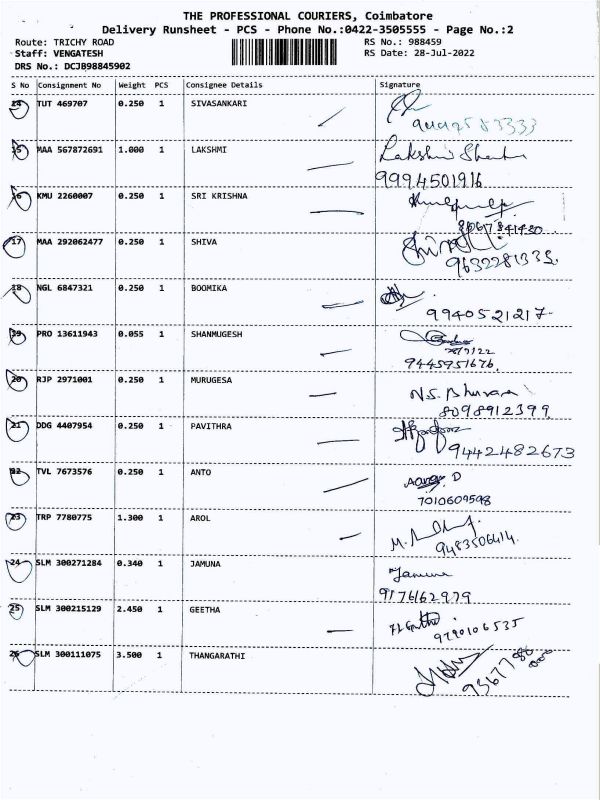 THE PROFESSIONAL COURIERS, Coimbatore
Delivery Runsheet - PCS - Phone No.:0422-3505555 - Page No.:2
Route: TRICHY ROAD RS No.: 988459
Staff: VENGATESH RS Date: 28-Jul-2022
DRS No.: DCJB98845902
S No Consignment No Weight PCS Consignee Details Signature
14 TUT 469707 0.250 1 SIVASANKARI
15 MAA 567872691 1.000 1 LAKSHMI Lakshmi
9994501916
16 KMU 2260007 0.250 1 SRI KRISHNA
17 MAA 292062477 0.250 1 SHIVA
9632281335
18 NGL 6847321 0.250 1 BOOMIKA
9940521217
19 PRO 13611943 0.055 1 SHANMUGESH
9445951676
20 RJP 2971001 0.250 1 MURUGESA N.S.
8098912399
21 DDG 4407954 0.250 1 PAVITHRA
9442482673
22 TVL 7673576 0.250 1 ANTO D
7010609598
23 TRP 7780775 1.300 1 AROL M.
9483506414
24 SLM 300271284 0.340 1 JAMUNA Jamuna
9176162979
25 SLM 300215129 2.450 1 GEETHA
9790106535
26 SLM 300111075 3.500 1 THANGARATHI